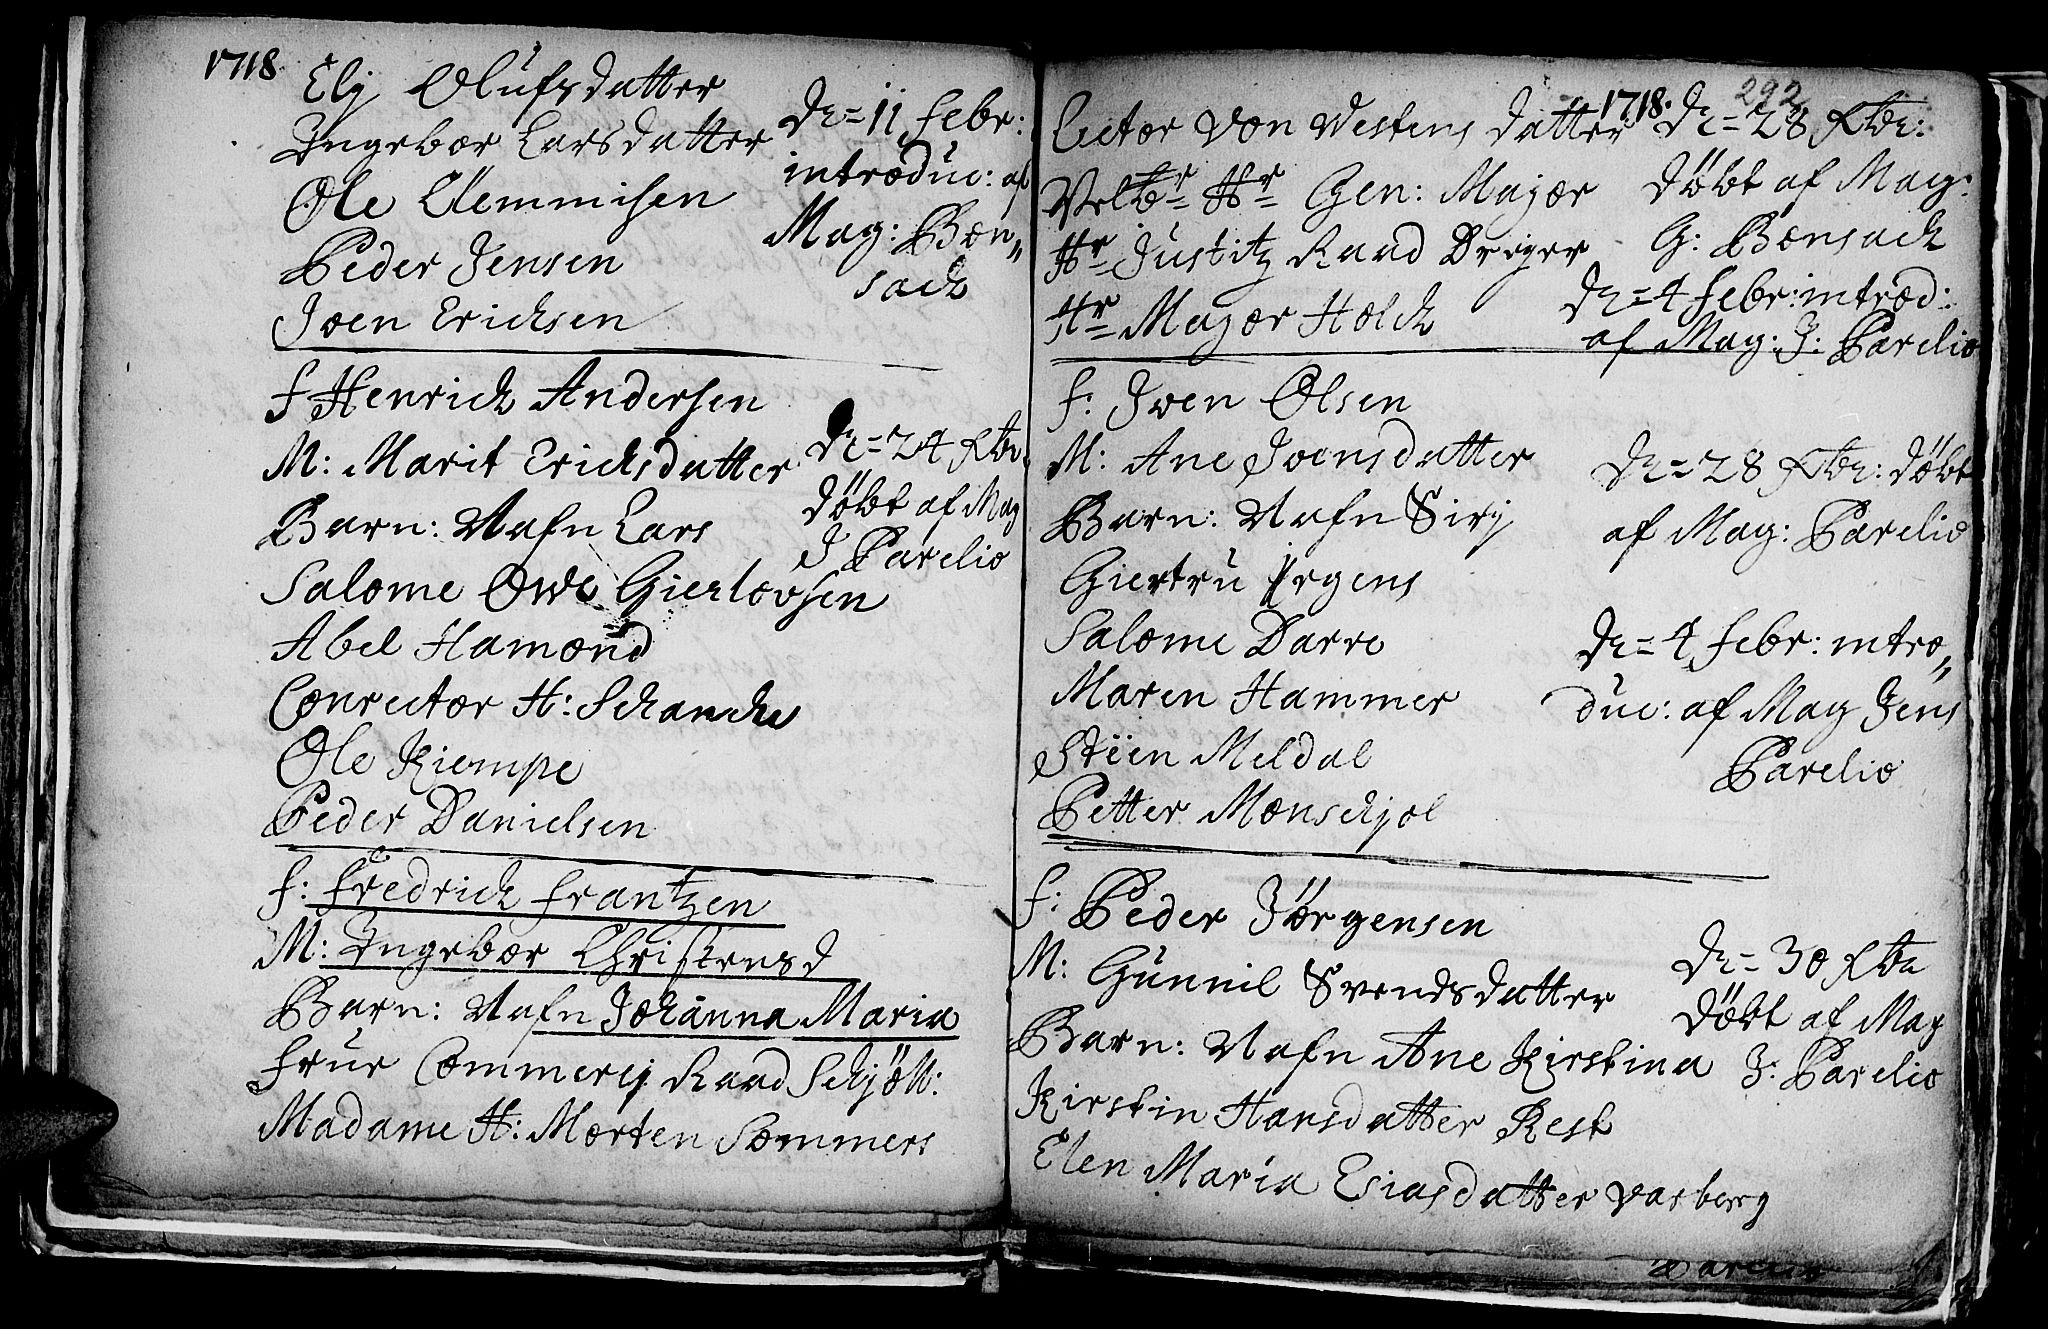 1718
Elj Olufsdatter
Ingebor Larsdatter
Ole Clemmisen
Peder Jensen
Joen Ericksen
Dn = 11 febr:
introduc: af
Mag: Bon„
sack
f Henrick Andersen
M: Marit Ericksdatter
Barn: Nafn Lars
Salome Owe Gierlovsen
Abel Hamond
Conrector H: Schanche
Ole Kiempe
Peder Danielsen
Dn = 24 Xbr
döbt af Mag
J Parelio
f: Fredrick Frantzen
M: Ingebor Christensd
Barn: Nafn Johanna Maria
Frue Commercij Raad Schjöll:
Madame H: Morten Sommers
292
1718.
Lictor von Westens datter
Velb^r H^r Gen: Major
H^r Justitz Raad Dreyer
H^r Major Holck
Dn = 28 Xbr:
döbt af Mag:
G: Bonsack
Dn = 4 febr: introd:
af Mag: J: Parelio
f: Joen Olsen
M: Ane Joensdatter
Barn: Nafn Sirij
Giertru Jrgens
Salome Darre
Maren Hammer
Steen Meldal
Petter Monsckjol
Dn = 28 Xbr: döbt
af Mag: Parelio
Dn = 4 febr: intro„
duc: af Mag Jens
Parelio
f: Peder Jörgensen
M: Gunnil Svendsdatter
Barn: Nafn Ane Kirstina
Kirstin Hansdatter Rest
Elen Maria Esiasdatter Varberg
Dn = 30 Xbr
Döbt af Mag
J: Parelio